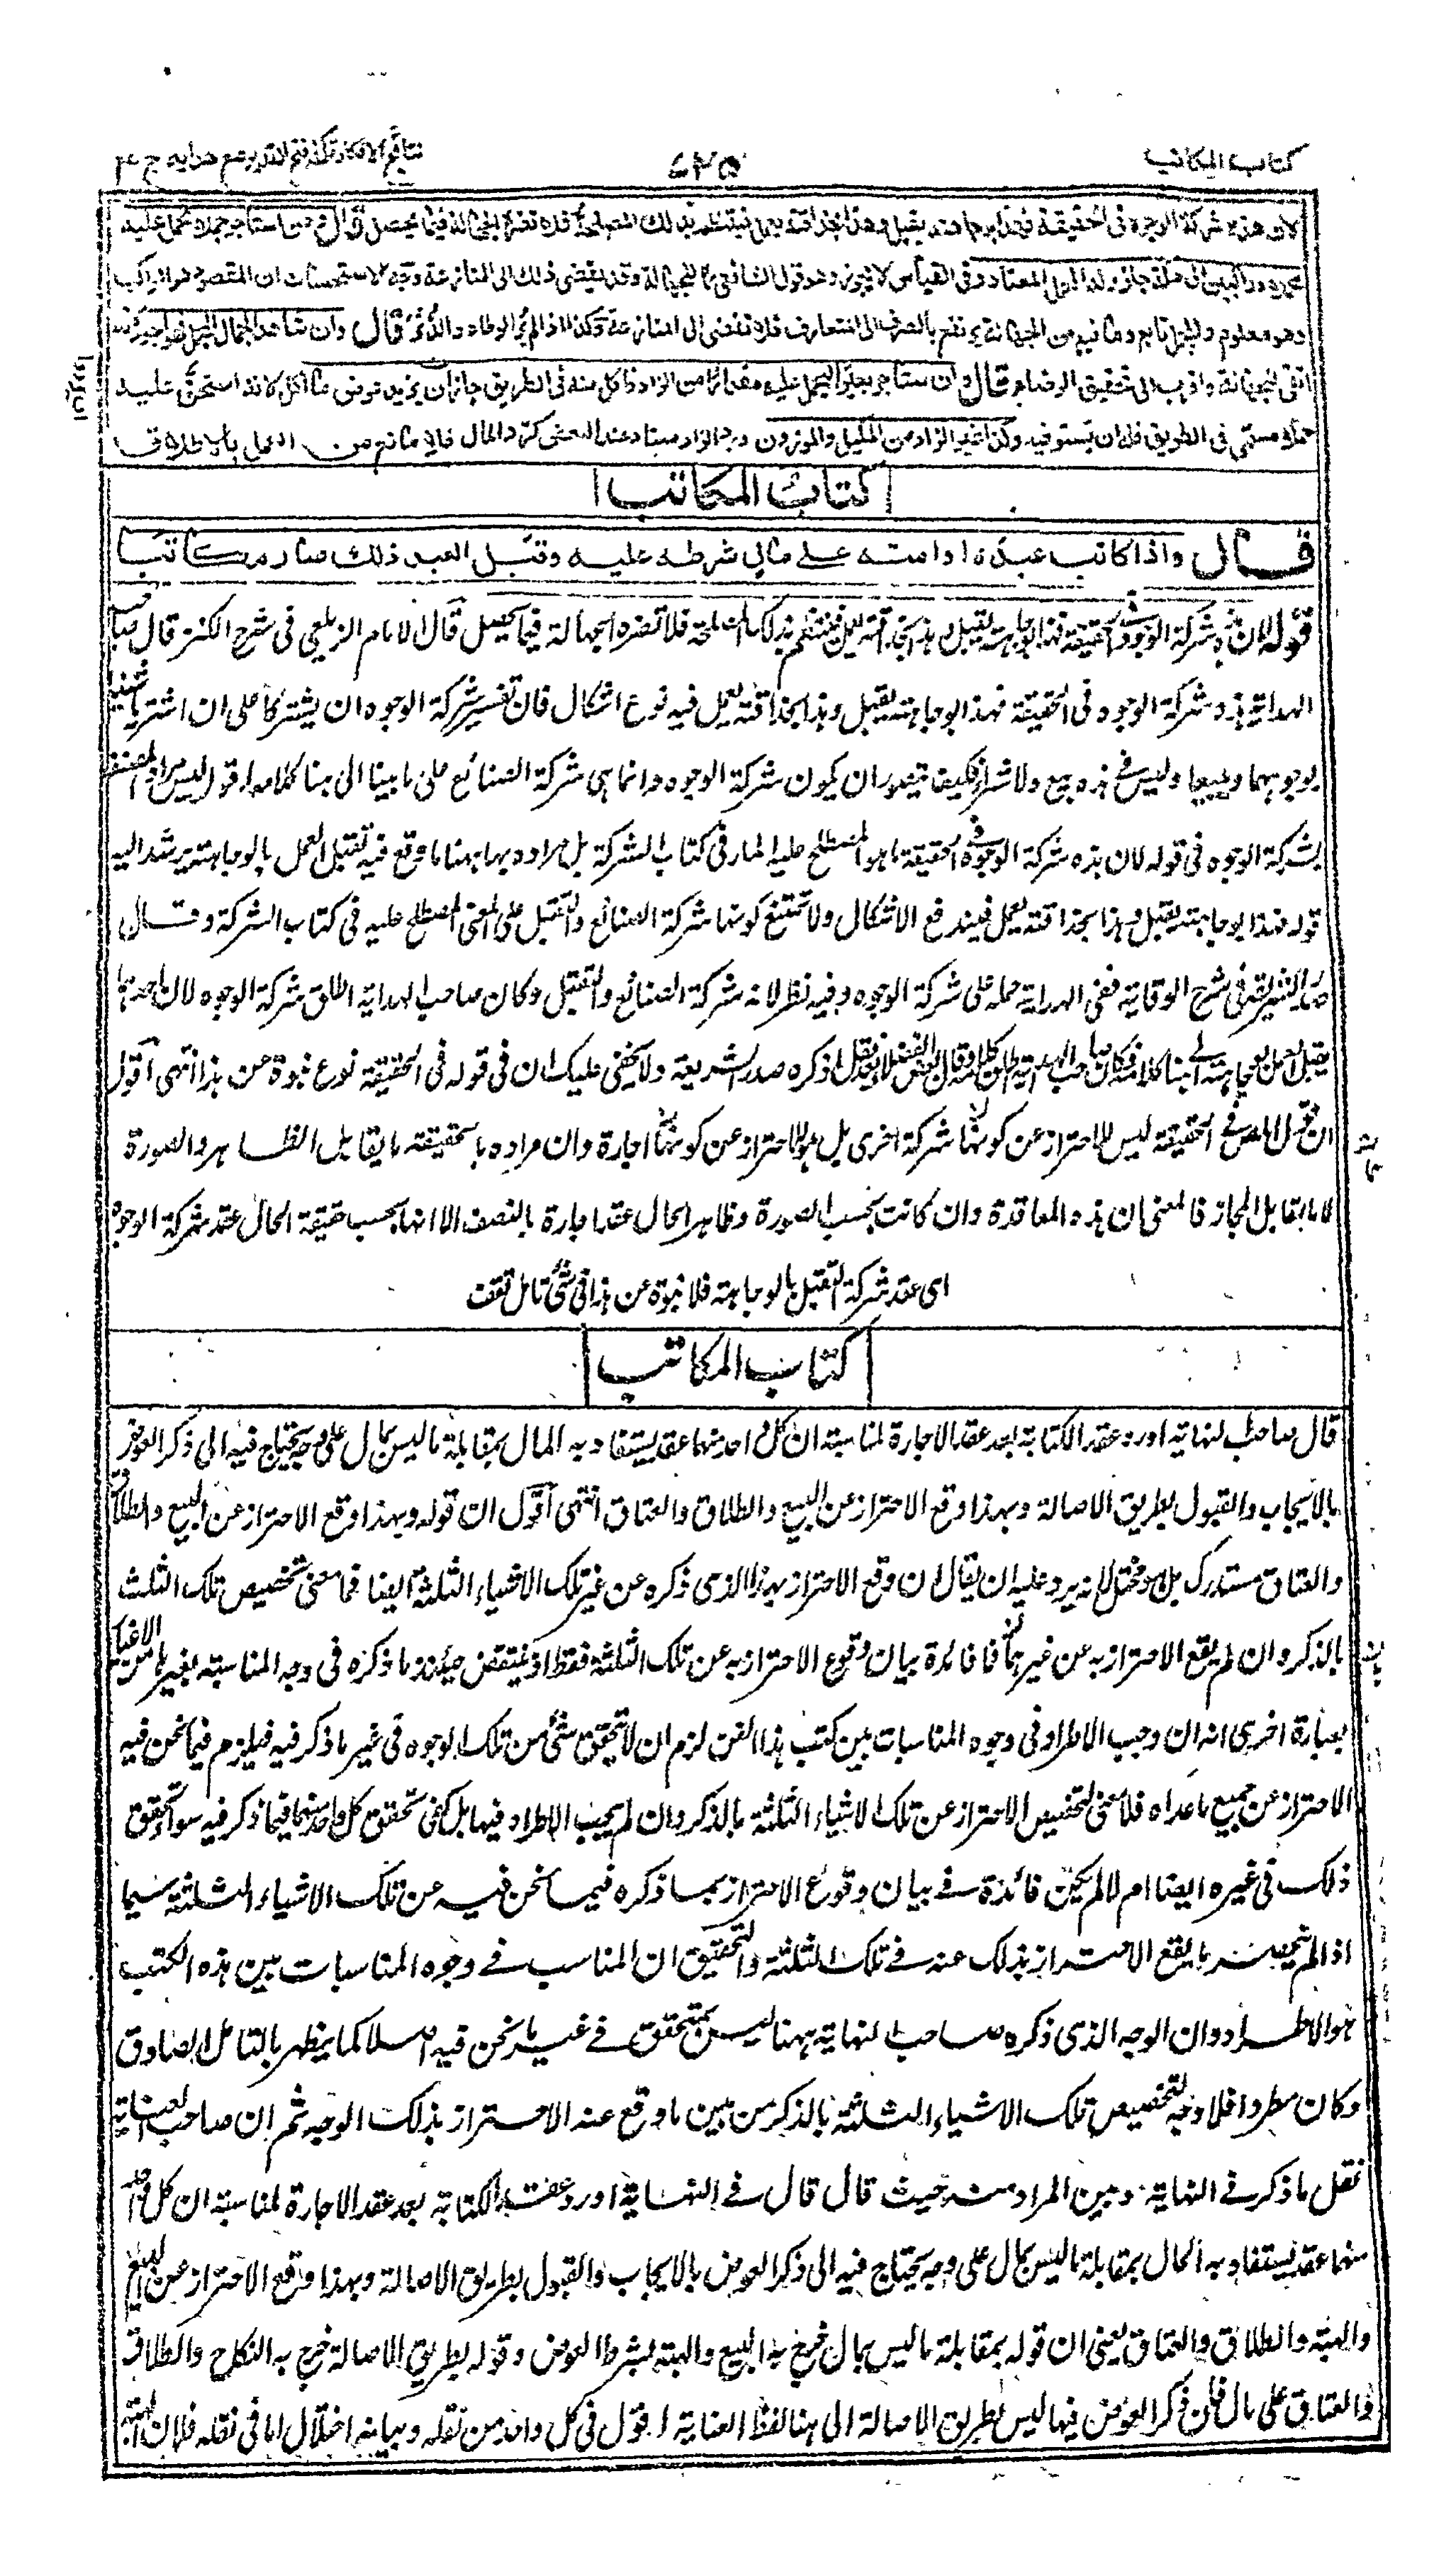 كتاب المكاتب
٤٢٥
نتائج الافكار تكملة فتح القدير مع هدايه ج ٤
لان هذه شركة الوجوه فى الحقيقة فهذا بوجاهته يقبل وهذا بحذاقته يعمل فينتظم بذلك المصلحة فلا تضره الجهالة فيما يحصل قال ومن استاجر جملا يحمل عليه
محملا وراكبين الى مكة جاز وله المحمل المعتاد وفى القياس لا يجوز وهو قول الشافعى للجهالة وقد يفضى ذلك الى المنازعة وجه الاستحسان ان المقصود هو الراكب
وهو معلوم والمحمل تابع وما فيه من الجهالة يرتفع بالصرف الى المتعارف فلا تفضى الى المنازعة وكذا اذا لم ير الوطاء والدثر قال وان شاهد الجمال المحمل فهو اجود لانه
انفى للجهالة واقرب الى تحقيق الرضاء قال وان استاجر بعيرا ليحمل عليه مقدارا من الزاد فاكل منه فى الطريق جاز ان يزيد عوض ما اكل لانه استحق عليه
حملا مسمى فى الطريق فله ان يستوفيه وكذا غير الزاد من المكيل والموزون ورد الزاد معتاد عند البعض كرد المال فلا مانع من العمل بالاطلاق
كتاب المكاتب
قال واذا كاتب عبده او امته على مال شرطه عليه وقبل العبد ذلك صار مكاتبا
قوله لان هذه شركة الوجوه فى الحقيقة فهذا بوجاهته يقبل وهذا بحذاقته يعمل فينتظم بذلك المصلحة فلا تضره الجهالة فيما يحصل قال الامام الزيلعى فى شرح الكنز قال صاحب
الهداية هذه شركة الوجوه فى الحقيقة فهذا بوجاهته يقبل وهذا بحذاقته يعمل فيه نوع اشكال فان تفسير شركة الوجوه ان يشتركا على ان يشتريا شيئا
بوجوههما ويبيعا وليس فى هذه بيع ولا شراء فكيف يتصور ان يكون شركة الوجوه وانما هى شركة الصنائع على ما بينا الى هنا كلامه اقول ليس مراد المصنف
بشركة الوجوه فى قوله لان هذه شركة الوجوه فى الحقيقة ما هو المصطلح عليه المار فى كتاب الشركة بل مراده بها ههنا ما وقع فيه تقبل العمل بالوجاهة يرشد اليه
قوله فهذا بوجاهته يقبل وهذا بحذاقته يعمل فيندفع الاشكال ولا يمتنع كونها شركة الصنائع والتقبل على المعنى المصطلح عليه فى كتاب الشركة وقال
صدر الشريعة فى شرح الوقاية ففى الهداية حمله على شركة الوجوه وفيه نظر لانه شركة الصنائع والتقبل وكان صاحب الهداية اطلق شركة الوجوه لان احدهما
يقبل العمل لوجاهته الى هنا كلامه وقال بعض الفضلاء نقل ما ذكره صدر الشريعة ولا يخفى عليك ان فى قوله فى الحقيقة نوع نبوة عن هذا انتهى اقول
ان قول المص فى الحقيقة ليس للاحتراز عن كونها شركة اخرى بل هو للاحتراز عن كونها اجارة وان مراده بالحقيقة ما يقابل الظاهر والصورة
لا ما يقابل المجاز فالمعنى ان هذه المعاقدة وان كانت بحسب الصورة وظاهر الحال عقد اجارة بالنصف الا انها بحسب حقيقة الحال عقد شركة الوجوه
اى عقد شركة التقبل بالوجاهة فلا نبوة عن هذا فى شئ تامل تقف
كتاب المكاتب
قال صاحب النهاية اورد عقد الكتابة بعد عقد الاجارة لمناسبة ان كل واحد منهما عقد يستفاد به المال بمقابلة ما ليس بمال على وجه يحتاج فيه الى ذكر العوض
بالايجاب والقبول بطريق الاصالة وبهذا وقع الاحتراز عن البيع والطلاق والعتاق انتهى اقول ان قوله وبهذا وقع الاحتراز عن البيع والطلاق
والعتاق مستدرك بل هو مختل لانه يرد عليه ان يقال ان وقع الاحتراز بهذا الذى ذكره عن غير تلك الاشياء الثلثة ايضا فما معنى تخصيص تلك الثلث
بالذكر وان لم يقع الاحتراز به عن غيرها فما فائدة بيان وقوع الاحتراز به عن تلك الثلثة فقط اذ ينتقض حينئذ ما ذكره فى وجه المناسبة بغيرها من الاغيار
بعبارة اخرى انه ان وجب الاطراد فى وجوه المناسبات بين كتب هذا الفن لزم ان لا يتحقق شئ من تلك الوجوه فى غير ما ذكر فيه فيلزم فيما نحن فيه
الاحتراز عن جميع ما عداه فلا معنى لتخصيص الاحتراز عن تلك الاشياء الثلثة بالذكر وان لم يجب الاطراد فيها بل كفى تحقق كل واحد منهما فيما ذكر فيه سواء تحقق
ذلك فى غيره ايضا ام لا لم يكن فائدة فى بيان وقوع الاحتراز بما ذكره فيما نحن فيه عن تلك الاشياء الثلثة سيما
اذا لم ينحصر ما يقع الاحتراز بذلك عنه فى تلك الثلثة والتحقيق ان المناسب فى وجوه المناسبات بين هذه الكتب
هو الاطراد وان الوجه الذى ذكره صاحب النهاية ههنا ليس بمتحقق فى غير ما نحن فيه اصلا كما يظهر بالتامل الصادق
وكان مطردا فلا وجه لتخصيص تلك الاشياء الثلثة بالذكر من بين ما وقع عنه الاحتراز بذلك الوجه ثم ان صاحب العناية
نقل ما ذكر فى النهاية وبين المراد منه حيث قال قال فى النهاية اورد عقد الكتابة بعد عقد الاجارة لمناسبة ان كل واحد
منهما عقد يستفاد به المال بمقابلة ما ليس بمال على وجه يحتاج فيه الى ذكر العوض بالايجاب والقبول بطريق الاصالة وبهذا وقع الاحتراز عن البيع
والهبة والطلاق والعتاق يعنى ان قوله بمقابلة ما ليس بمال خرج به البيع والهبة بشرط العوض وقوله بطريق الاصالة خرج به النكاح والطلاق
والعتاق على مال فان ذكر العوض فيها ليس بطريق الاصالة الى هنا لفظ العناية اقول فى كل واحد من نقله وبيانه اختلال اما فى نقله فلان الهبة